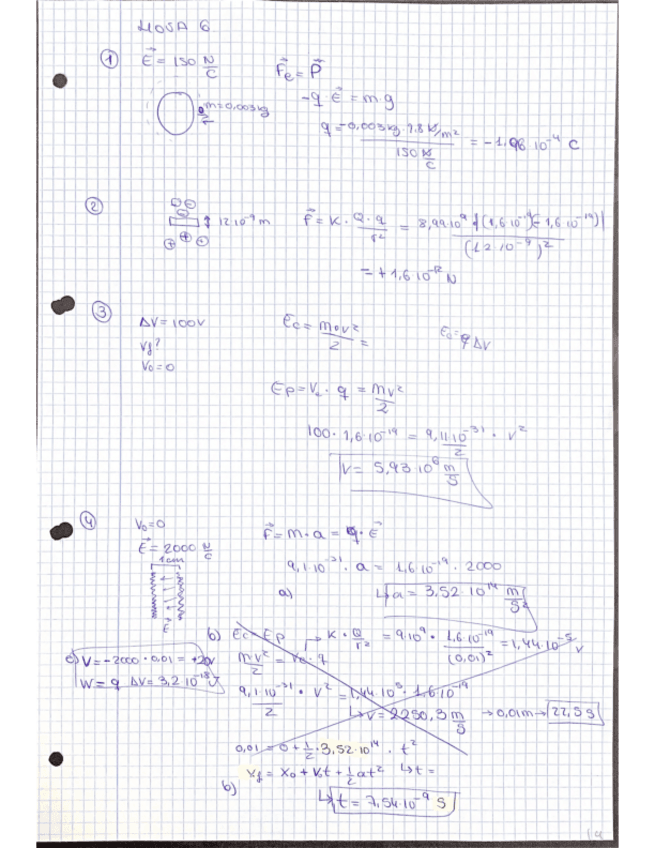 HOJA 6
① E⃗ = 150 N/C
F⃗e = P⃗
-q · E⃗ = m·g
m=0,003kg
q = -0,003kg · 9.8 N/m² / 150 N/C = -1,96·10⁻⁴ C
②
12·10⁻⁹ m
F⃗ = K · Q·q / r² = 8,99·10⁹ |(1,6·10⁻¹⁹)(-1,6·10⁻¹⁹)| / (12·10⁻⁹)²
= +1,6·10⁻¹² N
③
ΔV = 100V
Vf?
V₀ = 0
Ec = m·v² / 2 =
Ec = q ΔV
Ep = V₀ · q = mv² / 2
100 · 1,6·10⁻¹⁹ = 9,11·10⁻³¹ / 2 · v²
V = 5,93·10⁶ m/s
④
V₀=0
E⃗ = 2000 N/C
1cm
E⃗
F⃗ = m·a = q·E⃗
9,1·10⁻³¹ · a = 1,6·10⁻¹⁹ · 2000
a) ↳ a = 3,52·10¹⁴ m/s²
b) Ec = Ep
K · Q / r² = 9·10⁹ · 1,6·10⁻¹⁹ / (0,01)² = 1,44·10⁻⁵ V
mv² / 2 = V₀·q
c) V = -2000 · 0,01 = +20V
W = q ΔV = 3,2·10⁻¹⁸ J
9,1·10⁻³¹ / 2 · V² = 1,44·10⁵ · 1,6·10⁻¹⁹
↳ V = 2250,3 m/s → 0,01m → 22,5 s
0,01 = 0 + ½ · 3,52·10¹⁴ · t²
Xf = X₀ + V₀t + ½at² ↳ t =
b)
↳ t = 7,54·10⁻⁹ s